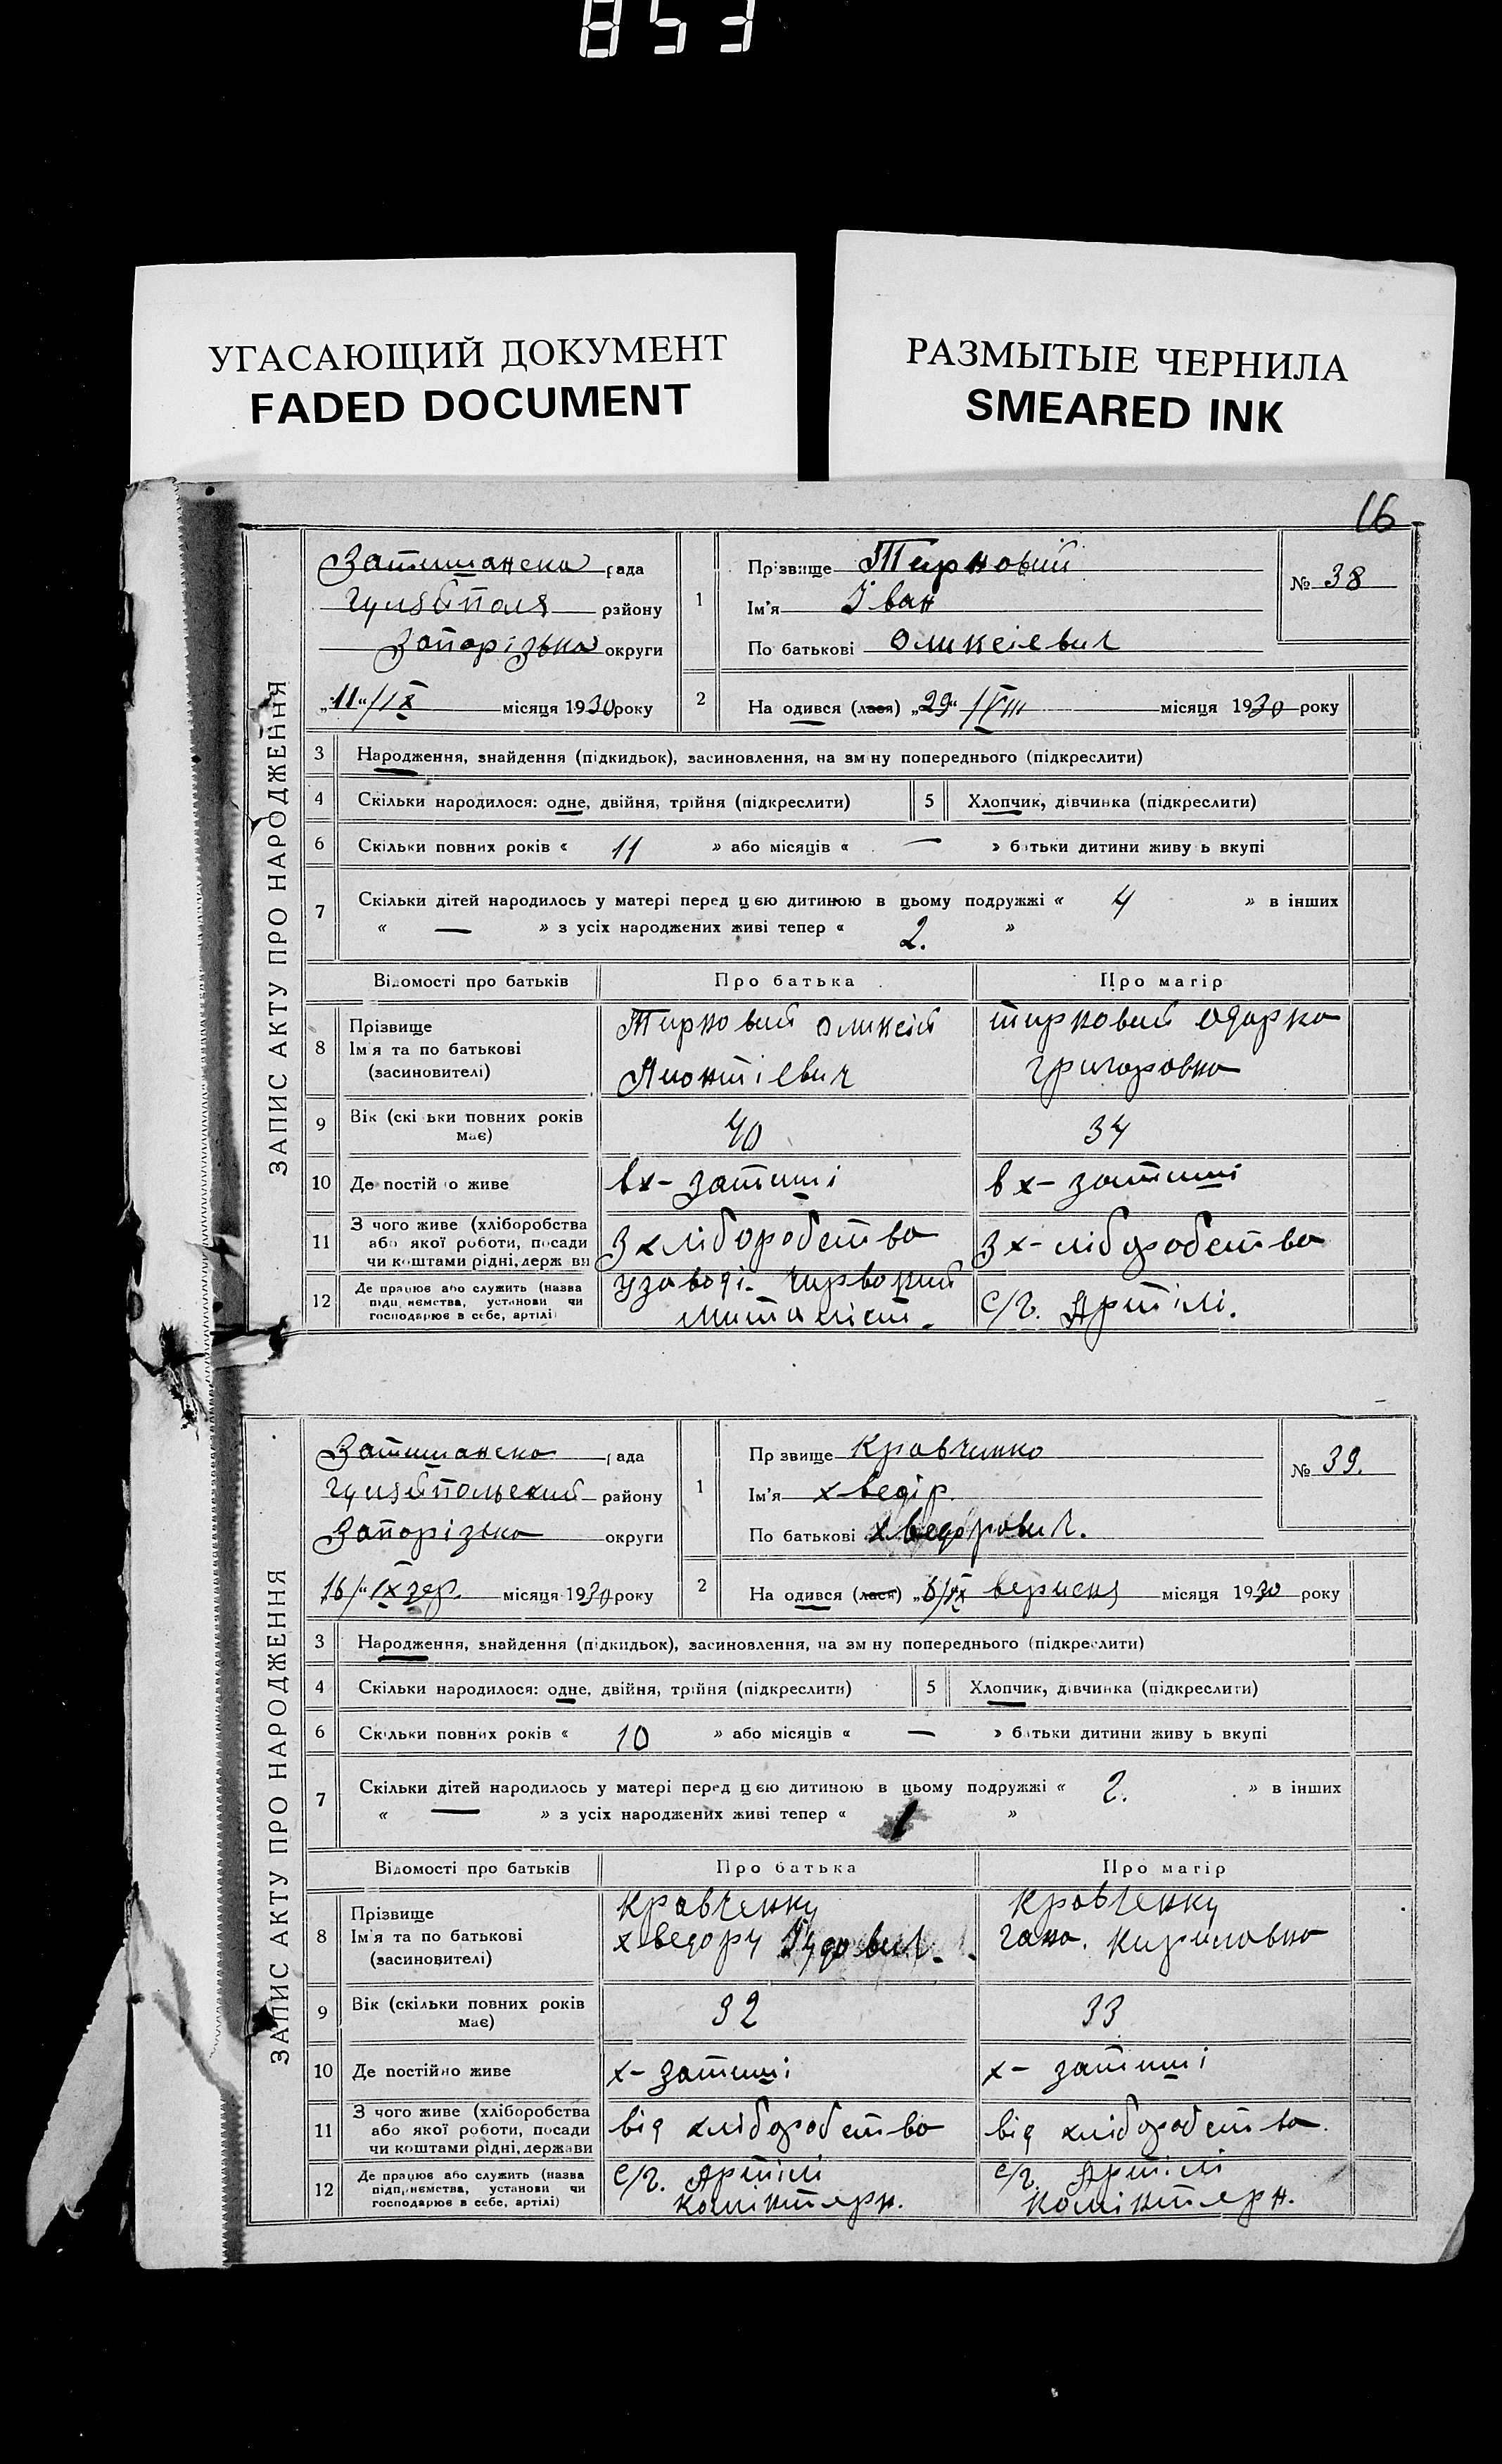 853
УГАСАЮЩИЙ ДОКУМЕНТ
FADED DOCUMENT
РАЗМЫТЫЕ ЧЕРНИЛА
SMEARED INK
16
ЗАПИС АКТУ ПРО НАРОДЖЕННЯ
Затишанска рада
району
Запорізька округи
„11“/IX місяця 1930 року
1
Прізвище Тирновий
Ім'я Іван
По батькові Оликсіевич
№ 38
2
На одився (лася) „29“/VIII місяця 1930 року
3 Народження, знайдення (підкидьок), засиновлення, на зм ну попереднього (підкреслити)
4 Скільки народилося: одне, двійня, трійня (підкреслити) 5 Хлопчик, дівчинка (підкреслити)
6 Скільки повних років « 11 » або місяців « — » батьки дитини живу ь вкупі
7 Скільки дітей народилось у матері перед цією дитиною в цьому подружжі « 4 » в інших
« — » з усіх народжених живі тепер « 2. »
Відомості про батьків Про батька Про матір
8 Прізвище
Ім'я та по батькові
(засиновителі)
Тирновий Оликсій
Лионтіевич
тирновий Одарка
Григоровна
9 Вік (скі ьки повних років
має)
40 34
10 Де постій о живе вх- затиші вх- затиші
11 З чого живе (хліборобства
або якої роботи, посади
чи коштами рідні, держ ви
З хліборобства З х-ліборобства
12 Де працює або служить (назва
підп иємства, установи чи
господарює в себе, артілі)
узаводі. Чирвоний
миталіст.
с/г. Артілі.
ЗАПИС АКТУ ПРО НАРОДЖЕННЯ
Затишанска рада
району
Запорізька округи
16/“IX вер. місяця 1930 року
1
Пр звище Кравчинко
Ім'я Хведір.
По батькові Хведорович.
№ 39.
2
На одився (лася) „6/IX вересня місяця 1930 року
3 Народження, знайдення (підкидьок), засиновлення, на зм ну попереднього (підкреслити)
4 Скільки народилося: одне, двійня, трійня (підкреслити) 5 Хлопчик, дівчинка (підкреслити)
6 Скільки повних років « 10 » або місяців « — » батьки дитини живу ь вкупі
7 Скільки дітей народилось у матері перед цією дитиною в цьому подружжі « 2. » в інших
« — » з усіх народжених живі тепер « 1 »
Відомості про батьків Про батька Про матір
8 Прізвище
Ім'я та по батькові
(засиновителі)
Кравченку
Хведору
Кравченку
Гана. Кириловна
9 Вік (скільки повних років
має)
32 33
10 Де постійно живе х- затиші х- затиші
11 З чого живе (хліборобства
або якої роботи, посади
чи коштами рідні, держави
від хліборобства від хліборобства.
12 Де працює або служить (назва
підприємства, установи чи
господарює в себе, артілі)
с/г. Артілі
Комінтерн.
с/г. Артілі
Комінтерн.